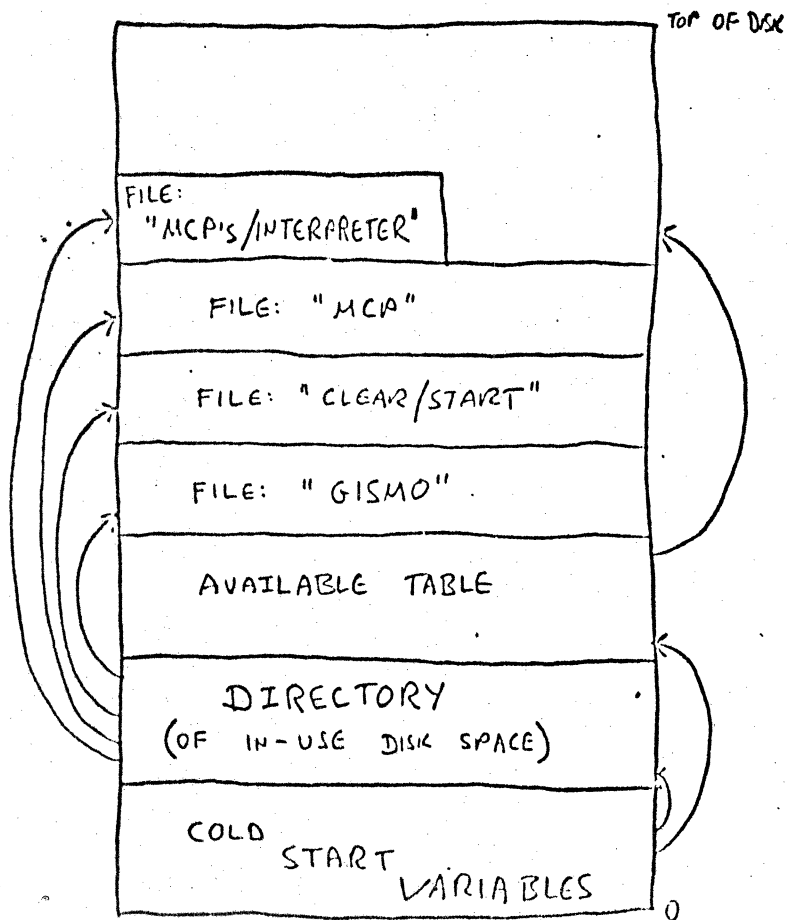 TOP OF DISK
FILE:
"MCP'S/INTERPRETER"
FILE: "MCP"
FILE: "CLEAR/START"
FILE: "GISMO".
AVAILABLE TABLE
DIRECTORY
(OF IN-USE DISK SPACE)
COLD
START
VARIABLES
0